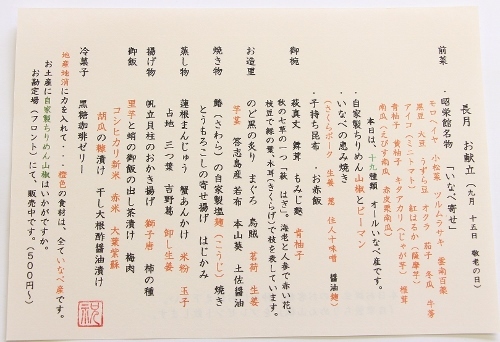 長月　お献立（九月　十五日　敬老の日）
前菜　・昭栄館名物　「いなべ寄せ」
モロヘイヤ　小松菜　ツルムラサキ　雲南百薬
黒豆　大豆　うずら豆　オクラ　茄子　冬瓜　牛蒡
アイコ（ミニトマト）　紅はるか（薩摩芋）
青柚子　黄柚子　キタアカリ（じゃが芋）　椎茸
南瓜（えびす南瓜　赤皮栗南瓜）
本日は、十九種類　オールいなべ産です。
・自家製ちりめん山椒とピーマン
・いなべの恵み焼き
（さくらポーク　生姜　葱　住人十味噌　醤油麹）
・子持ち昆布　・お赤飯
御椀　萩真丈　舞茸　もみじ麩　青柚子
秋の七草の一つ（萩　はぎ）。海老と人参で赤い花、
枝豆で緑の葉、木耳（きくらげ）で枝を表しています。
お造里　のど黒の炙り　まぐろ　烏賊　茗荷　生姜
芋茎　答志島産　若布　本山葵　土佐醤油
焼き物　鰆（さわら）の自家製塩麹（こうじ）焼き
とうもろこしの寄せ揚げ　はじかみ
蒸し物　蓮根まんじゅう　蟹あんかけ　米粉　玉子
占地　三つ葉　吉野葛　卸し生姜
揚げ物　帆立貝柱のおかき揚げ　獅子唐　柿の種
御飯　里芋と蛸の御飯の出し茶漬け　梅肉
コシヒカリ新米　赤米　大葉紫蘇
胡瓜の糠漬け　干し大根酢醤油漬け
冷菓子　黒糖珈琲ゼリー
地産地消に力を入れて・・・橙色の食材は、全ていなべ産です。
お土産に自家製ちりめん山椒はいかがですか。
お勘定場（フロント）にて、販売中です。（５００円〜）